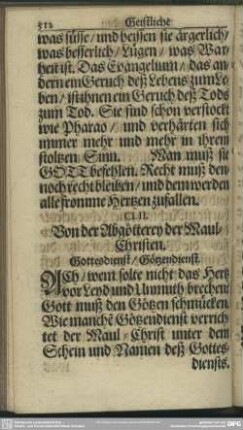 512 Geistliche
was süsse/ und heissen sie ärgerlich/
was besserlich/ Lügen/ was War-
heit ist. Das Evangelium/ das an-
dern ein Geruch deß Lebens zum Le-
ben/ ist ihnen ein Geruch deß Tods
zum Tod. Sie sind schon verstockt
wie Pharao/ und verhärten sich
immer mehr und mehr in ihrem
stoltzen Sinn. Man muß sie
GOTT befehlen. Recht muß den-
noch recht bleiben/ und dem werden
alle fromme Hertzen zufallen.
CLII.
Von der Abgötterey der Maul-
Christen.
Gottesdienst/ Götzendienst.
ACh/ wem solte nicht das Hertz
vor Leyd und Unmuth brechen!
Gott muß den Götzen schmücken.
Wie manchē Götzendienst verrich-
tet der Maul-Christ unter dem
Schein und Namen deß Gottes-
diensts.